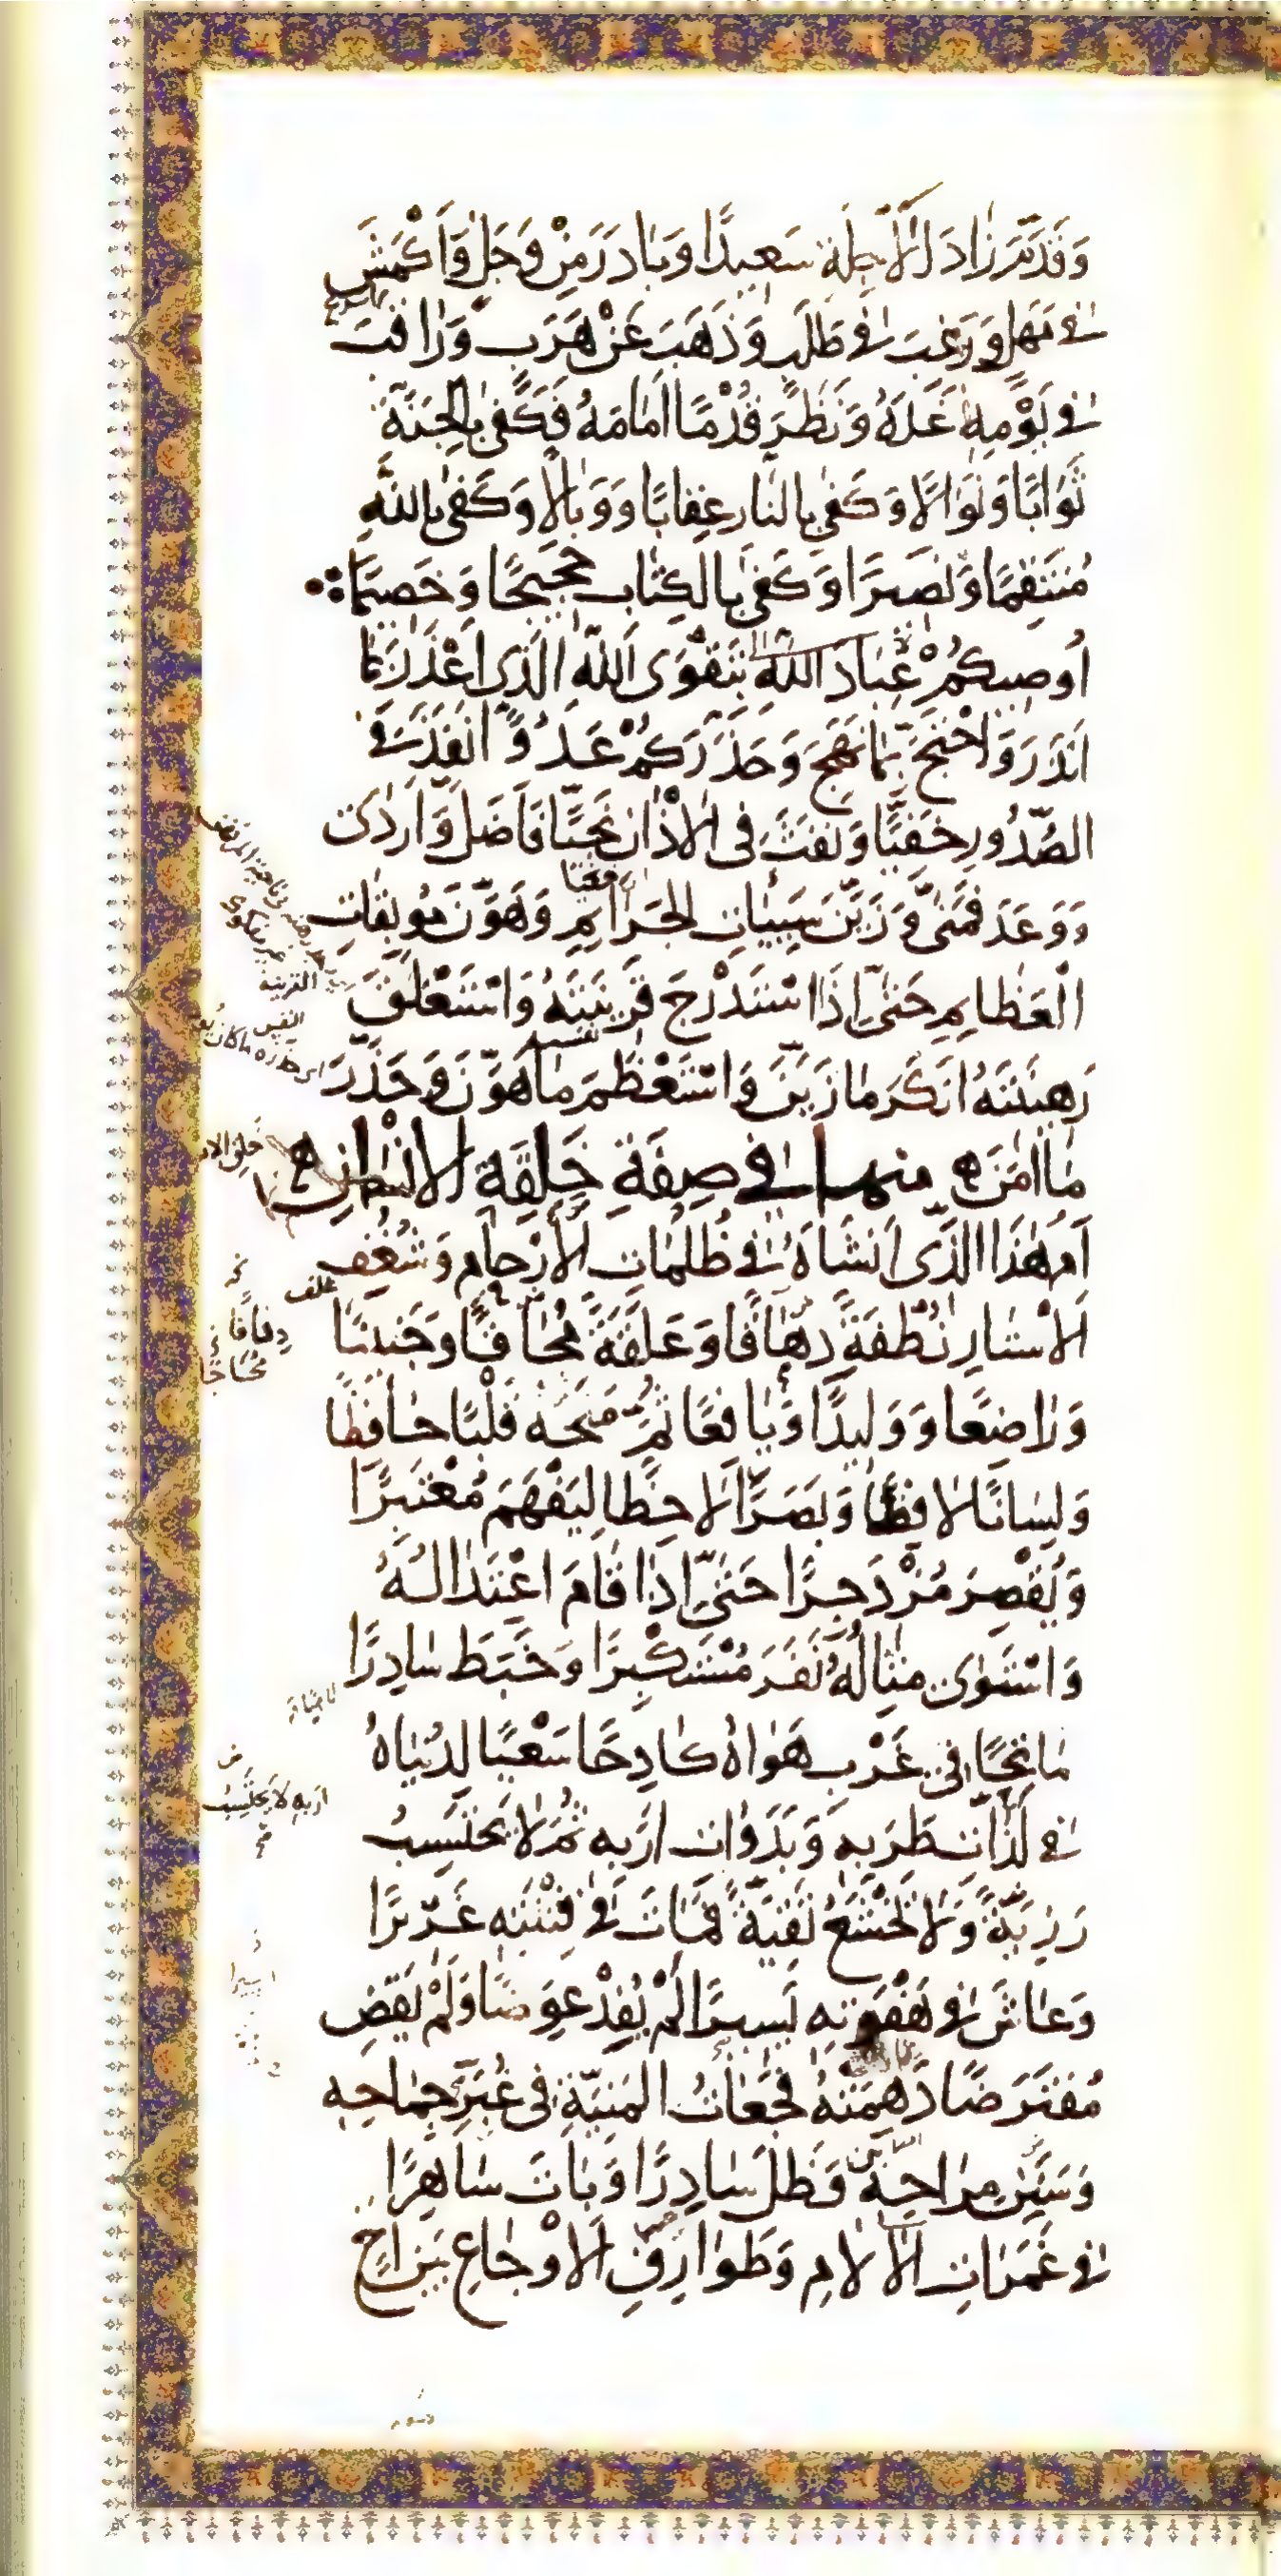 وَقَدَّمَ زَادَ الْآجِلَةِ سَعِيدًا وَبَادَرَ مِنْ وَجَلٍ وَأَكْمَشَ
فِي مَهَلٍ وَرَغِبَ فِي طَلَبٍ وَذَهَبَ عَنْ هَرَبٍ وَرَاقَبَ
فِي يَوْمِهِ غَدَهُ وَنَظَرَ قُدُمًا أَمَامَهُ فَكَفَى بِالْجَنَّةِ
ثَوَابًا وَنَوَالًا وَكَفَى بِالنَّارِ عِقَابًا وَوَبَالًا وَكَفَى بِاللَّهِ
مُنْتَقِمًا وَنَصِيرًا وَكَفَى بِالْكِتَابِ حَجِيجًا وَخَصِيمًا
أُوصِيكُمْ عِبَادَ اللَّهِ بِتَقْوَى اللَّهِ الَّذِي أَعْذَرَ بِمَا
أَنْذَرَ وَاحْتَجَّ بِمَا نَهَجَ وَحَذَّرَكُمْ عَدُوًّا نَفَذَ فِي
الصُّدُورِ خَفِيًّا وَنَفَثَ فِي الْآذَانِ نَجِيًّا فَأَضَلَّ وَأَرْدَى
وَوَعَدَ فَمَنَّى وَزَيَّنَ سَيِّئَاتِ الْجَرَائِمِ وَهَوَّنَ مُوبِقَاتِ
الْعَظَائِمِ حَتَّى إِذَا اسْتَدْرَجَ قَرِينَتَهُ وَاسْتَغْلَقَ
رَهِينَتَهُ أَنْكَرَ مَا زَيَّنَ وَاسْتَعْظَمَ مَا هَوَّنَ وَحَذَّرَ
مَا أَمَّنَ ه منها فِي صِفَةِ خِلْقَةِ الْإِنْسَانِ ه
أَمْ هَذَا الَّذِي أَنْشَأَهُ فِي ظُلُمَاتِ الْأَرْحَامِ وَشُغُفِ
الْأَسْتَارِ نُطْفَةً دِهَاقًا وَعَلَقَةً مُحَاقًا وَجَنِينًا
وَرَاضِعًا وَوَلِيدًا وَيَافِعًا ثُمَّ مَنَحَهُ قَلْبًا حَافِظًا
وَلِسَانًا لَافِظًا وَبَصَرًا لَاحِظًا لِيَفْهَمَ مُعْتَبِرًا
وَيُقْصِرَ مُزْدَجِرًا حَتَّى إِذَا قَامَ اعْتِدَالُهُ
وَاسْتَوَى مِثَالُهُ نَفَرَ مُسْتَكْبِرًا وَخَبَطَ سَادِرًا
مَاتِحًا فِي غَرْبِ هَوَاهُ كَادِحًا سَعْيًا لِدُنْيَاهُ
فِي لَذَّاتِ طَرَبِهِ وَبَدَوَاتِ أَرَبِهِ ثُمَّ لَا يَحْتَسِبُ
رَزِيَّةً وَلَا يَخْشَعُ تَقِيَّةً فَمَاتَ فِي فِتْنَتِهِ غَرِيرًا
وَعَاشَ فِي هَفْوَتِهِ يَسِيرًا لَمْ يُفِدْ عِوَضًا وَلَمْ يَقْضِ
مُفْتَرَضًا دَهِمَتْهُ فَجَعَاتُ الْمَنِيَّةِ فِي غُبَّرِ جِمَاحِهِ
وَسَنَنِ مِرَاحِهِ فَظَلَّ سَادِرًا وَبَاتَ سَاهِرًا
فِي غَمَرَاتِ الْآلَامِ وَطَوَارِقِ الْأَوْجَاعِ بَيْنَ أَخٍ